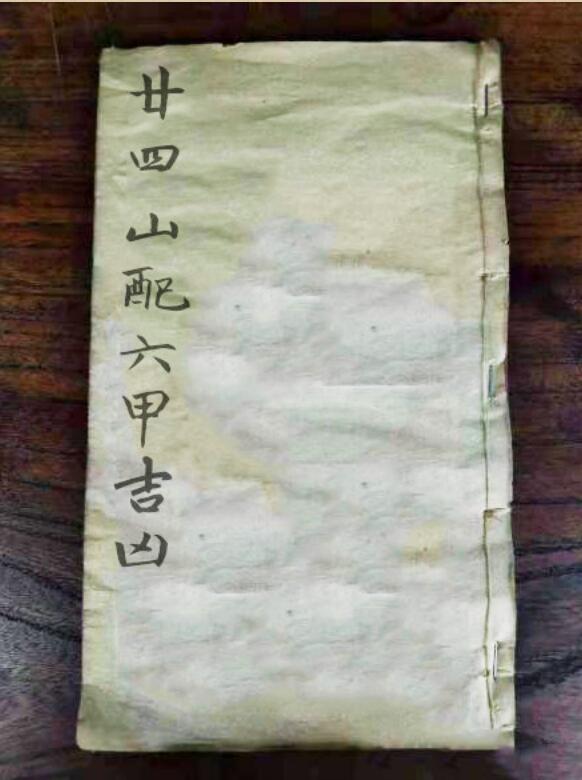 廿四山配六甲吉凶